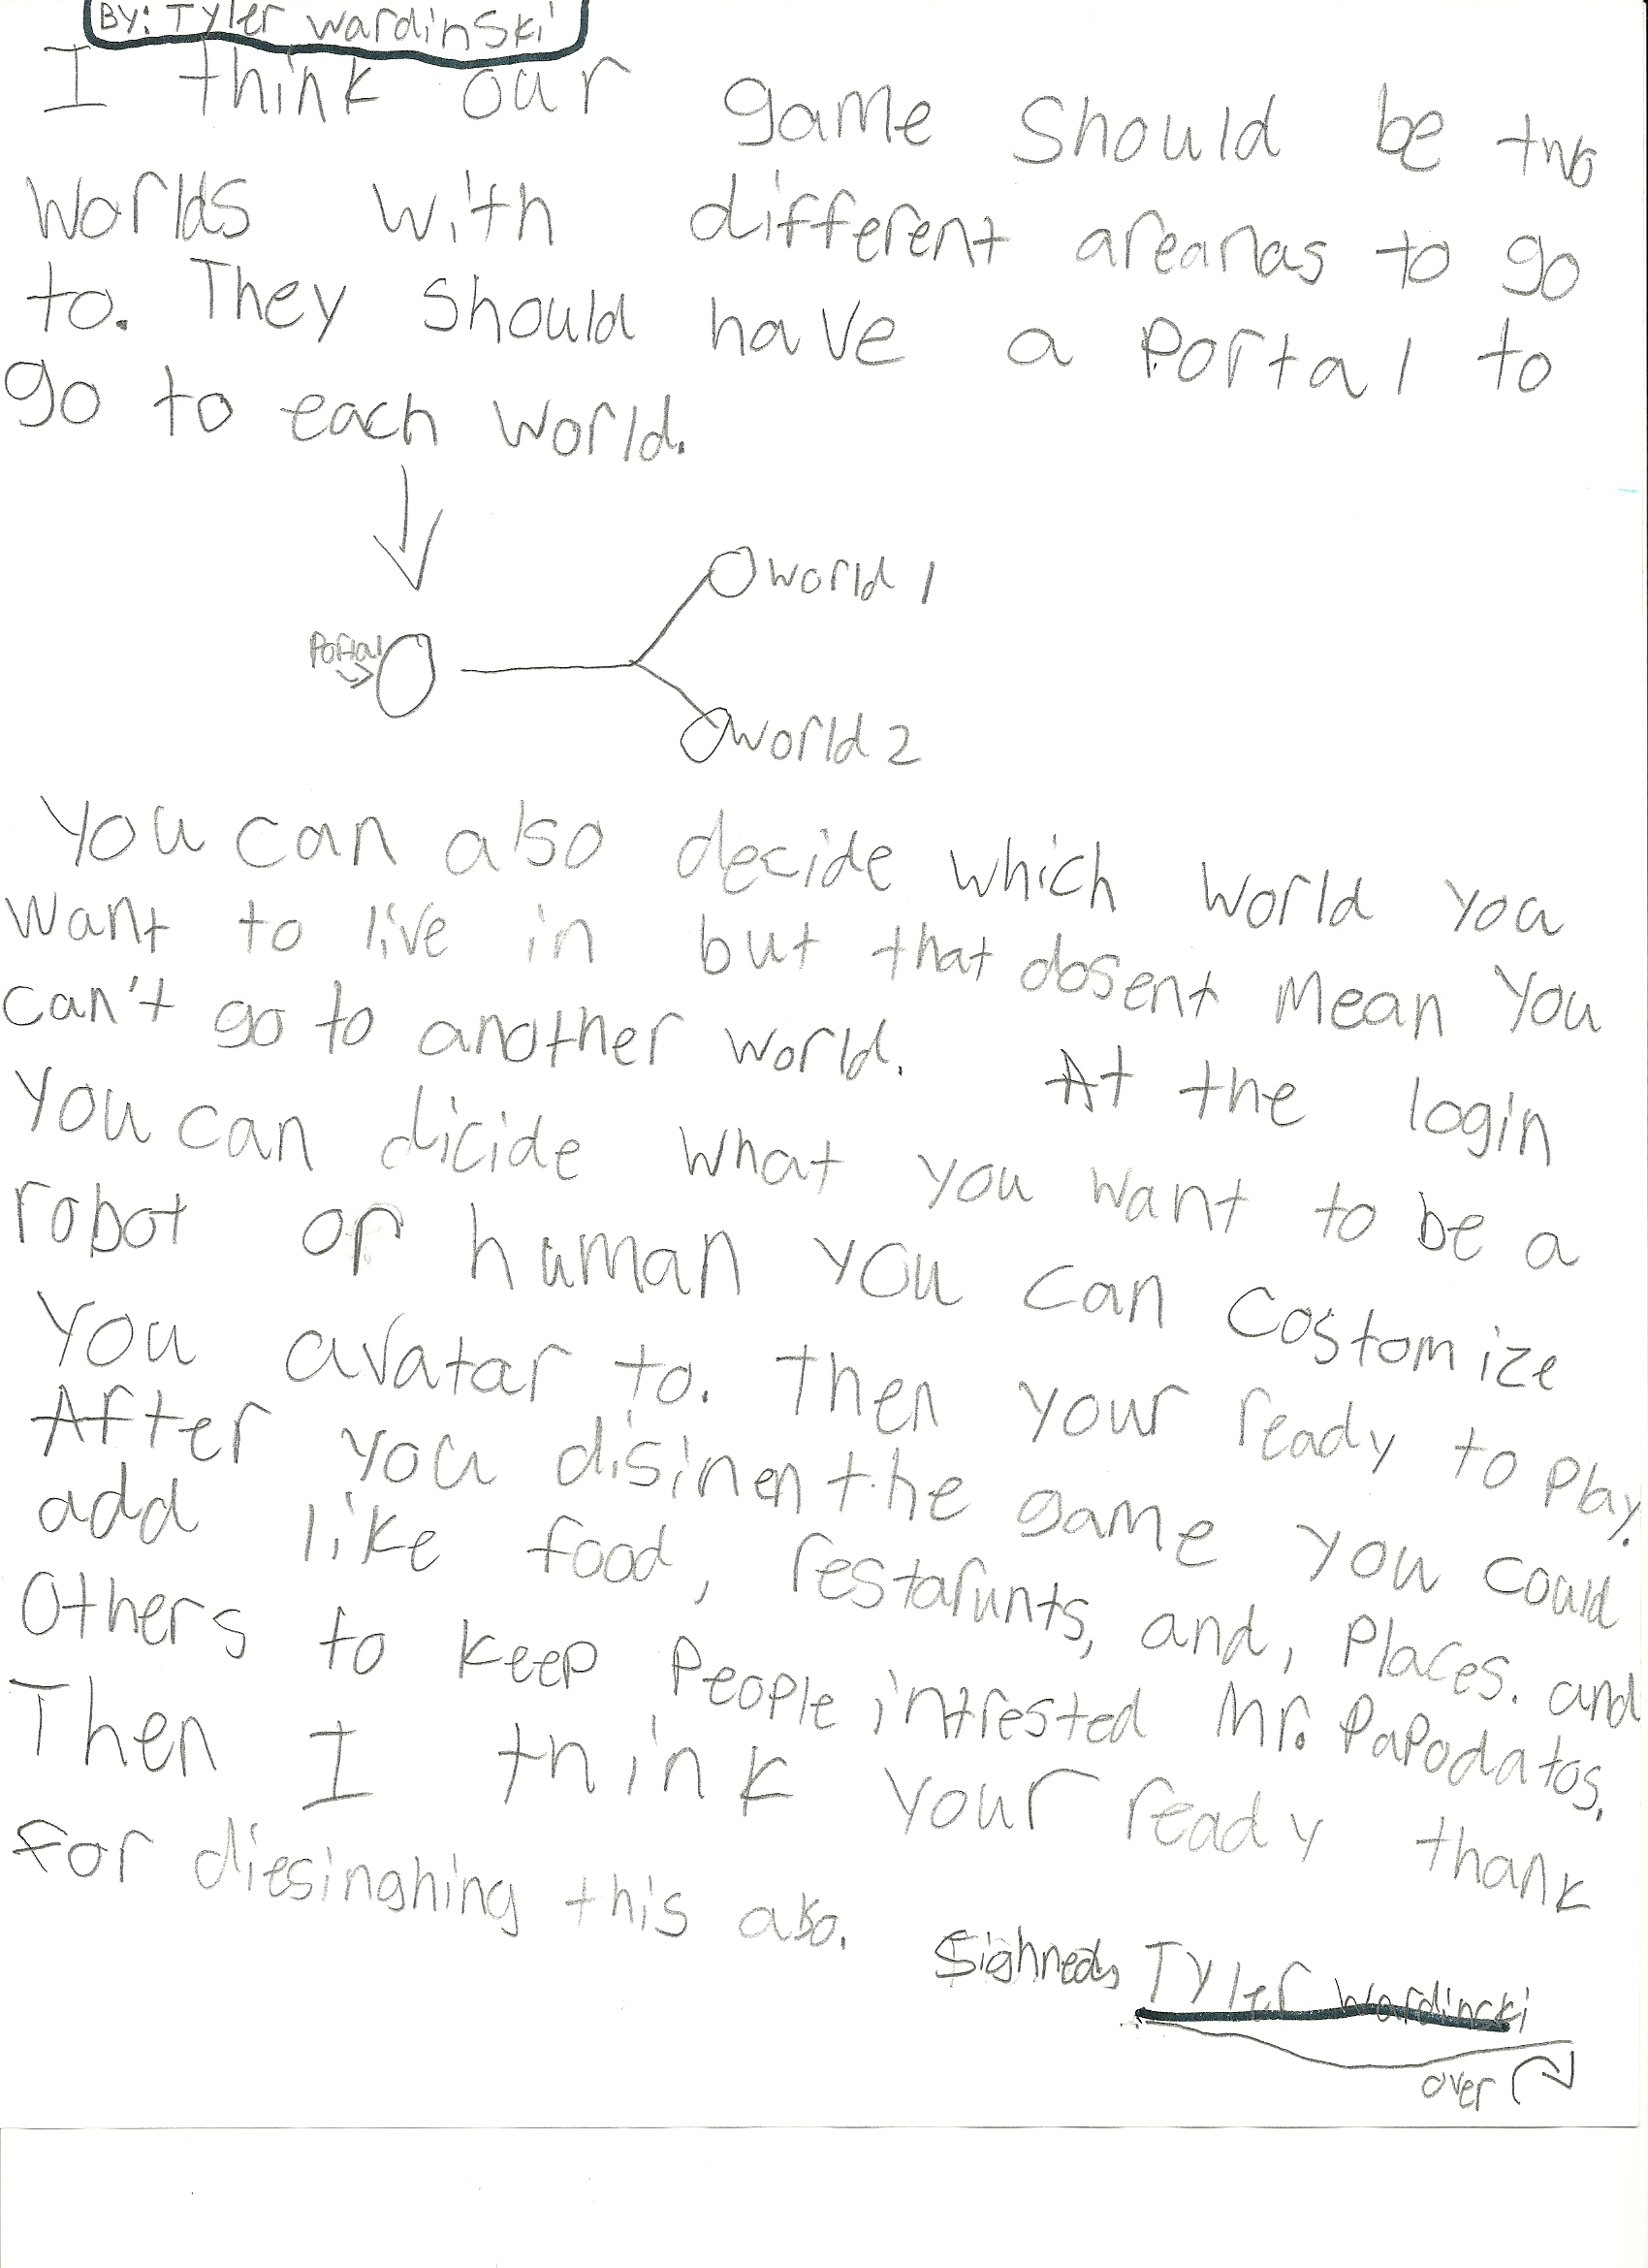 BY: Tyler Wardinski
I think our game should be two
worlds with different areanas to go
to. They should have a Portal to
go to each world.
World 1
Portal
World 2
You can also decide which world you
want to live in but that dosent mean you
can't go to another world. At the login
you can dicide what you want to be a
robot or human you can costomize
you avatar to. then your ready to play.
After you disinen the game you could
add like food, restarunts, and, Places. and
Others to keep People intrested Mr. PaPodatos,
Then I think your ready thank
for diesinghing this also.
Sighned, Tyler Wardinski
over